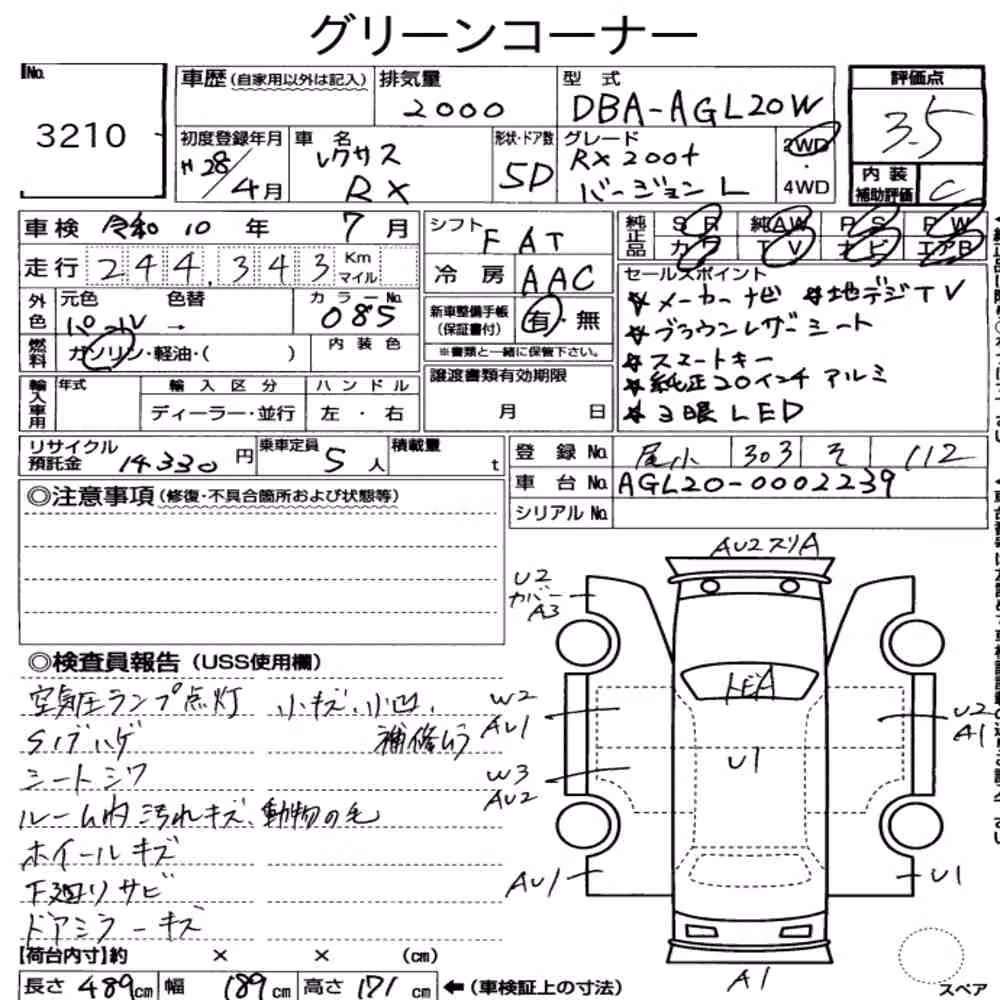 グリーンコーナー
No. 3210
車歴 (自家用以外は記入) 排気量 2000 型式 DBA-AGL20W 評価点 3.5
初度登録年月 H28/4月 車名 レクサス RX 形状・ドア数 5D グレード RX200t バージョン L 2WD・4WD
内装補助評価 C
車検 令和 10 年 7 月 シフト F AT 純正品 SR 純AW PS PW
カワ TV ナビ エアB
走行 244,343 Km マイル 冷房 AAC
セールスポイント
☆メーカーナビ ☆地デジTV
☆ブラウンレザーシート
☆スマートキー
☆純正20インチアルミ
☆3眼LED
外色 元色 パール → 色替 カラーNo. 085
新車整備手帳 (保証書付) 有・無
※書類と一緒に保管下さい。
燃料 ガソリン・軽油・( ) 内装色
譲渡書類有効期限 月 日
輸入車用 年式 輸入区分 ハンドル
ディーラー・並行 左・右
リサイクル預託金 14330 円 乗車定員 5 人 積載量 t
登録No. 尾小 303 そ 112
車台No. AGL20-0002239
シリアルNo.
◎注意事項 (修復・不具合箇所および状態等)
◎検査員報告 (USS使用欄)
空気圧ランプ点灯 小キズ、小凹、
Sノブハゲ 補修ムラ
シートシワ
ルーム内汚れキズ、動物の毛
ホイールキズ
下廻りサビ
ドアミラーキズ
AU2スリA
U2
カバー
A3
トビA
W2
AU1
U2
A1
U1
W3
AU2
AU1
U1
A1
スペア
【荷台内寸】約 × × (cm)
長さ 489cm 幅 189cm 高さ 171cm ←(車検証上の寸法)